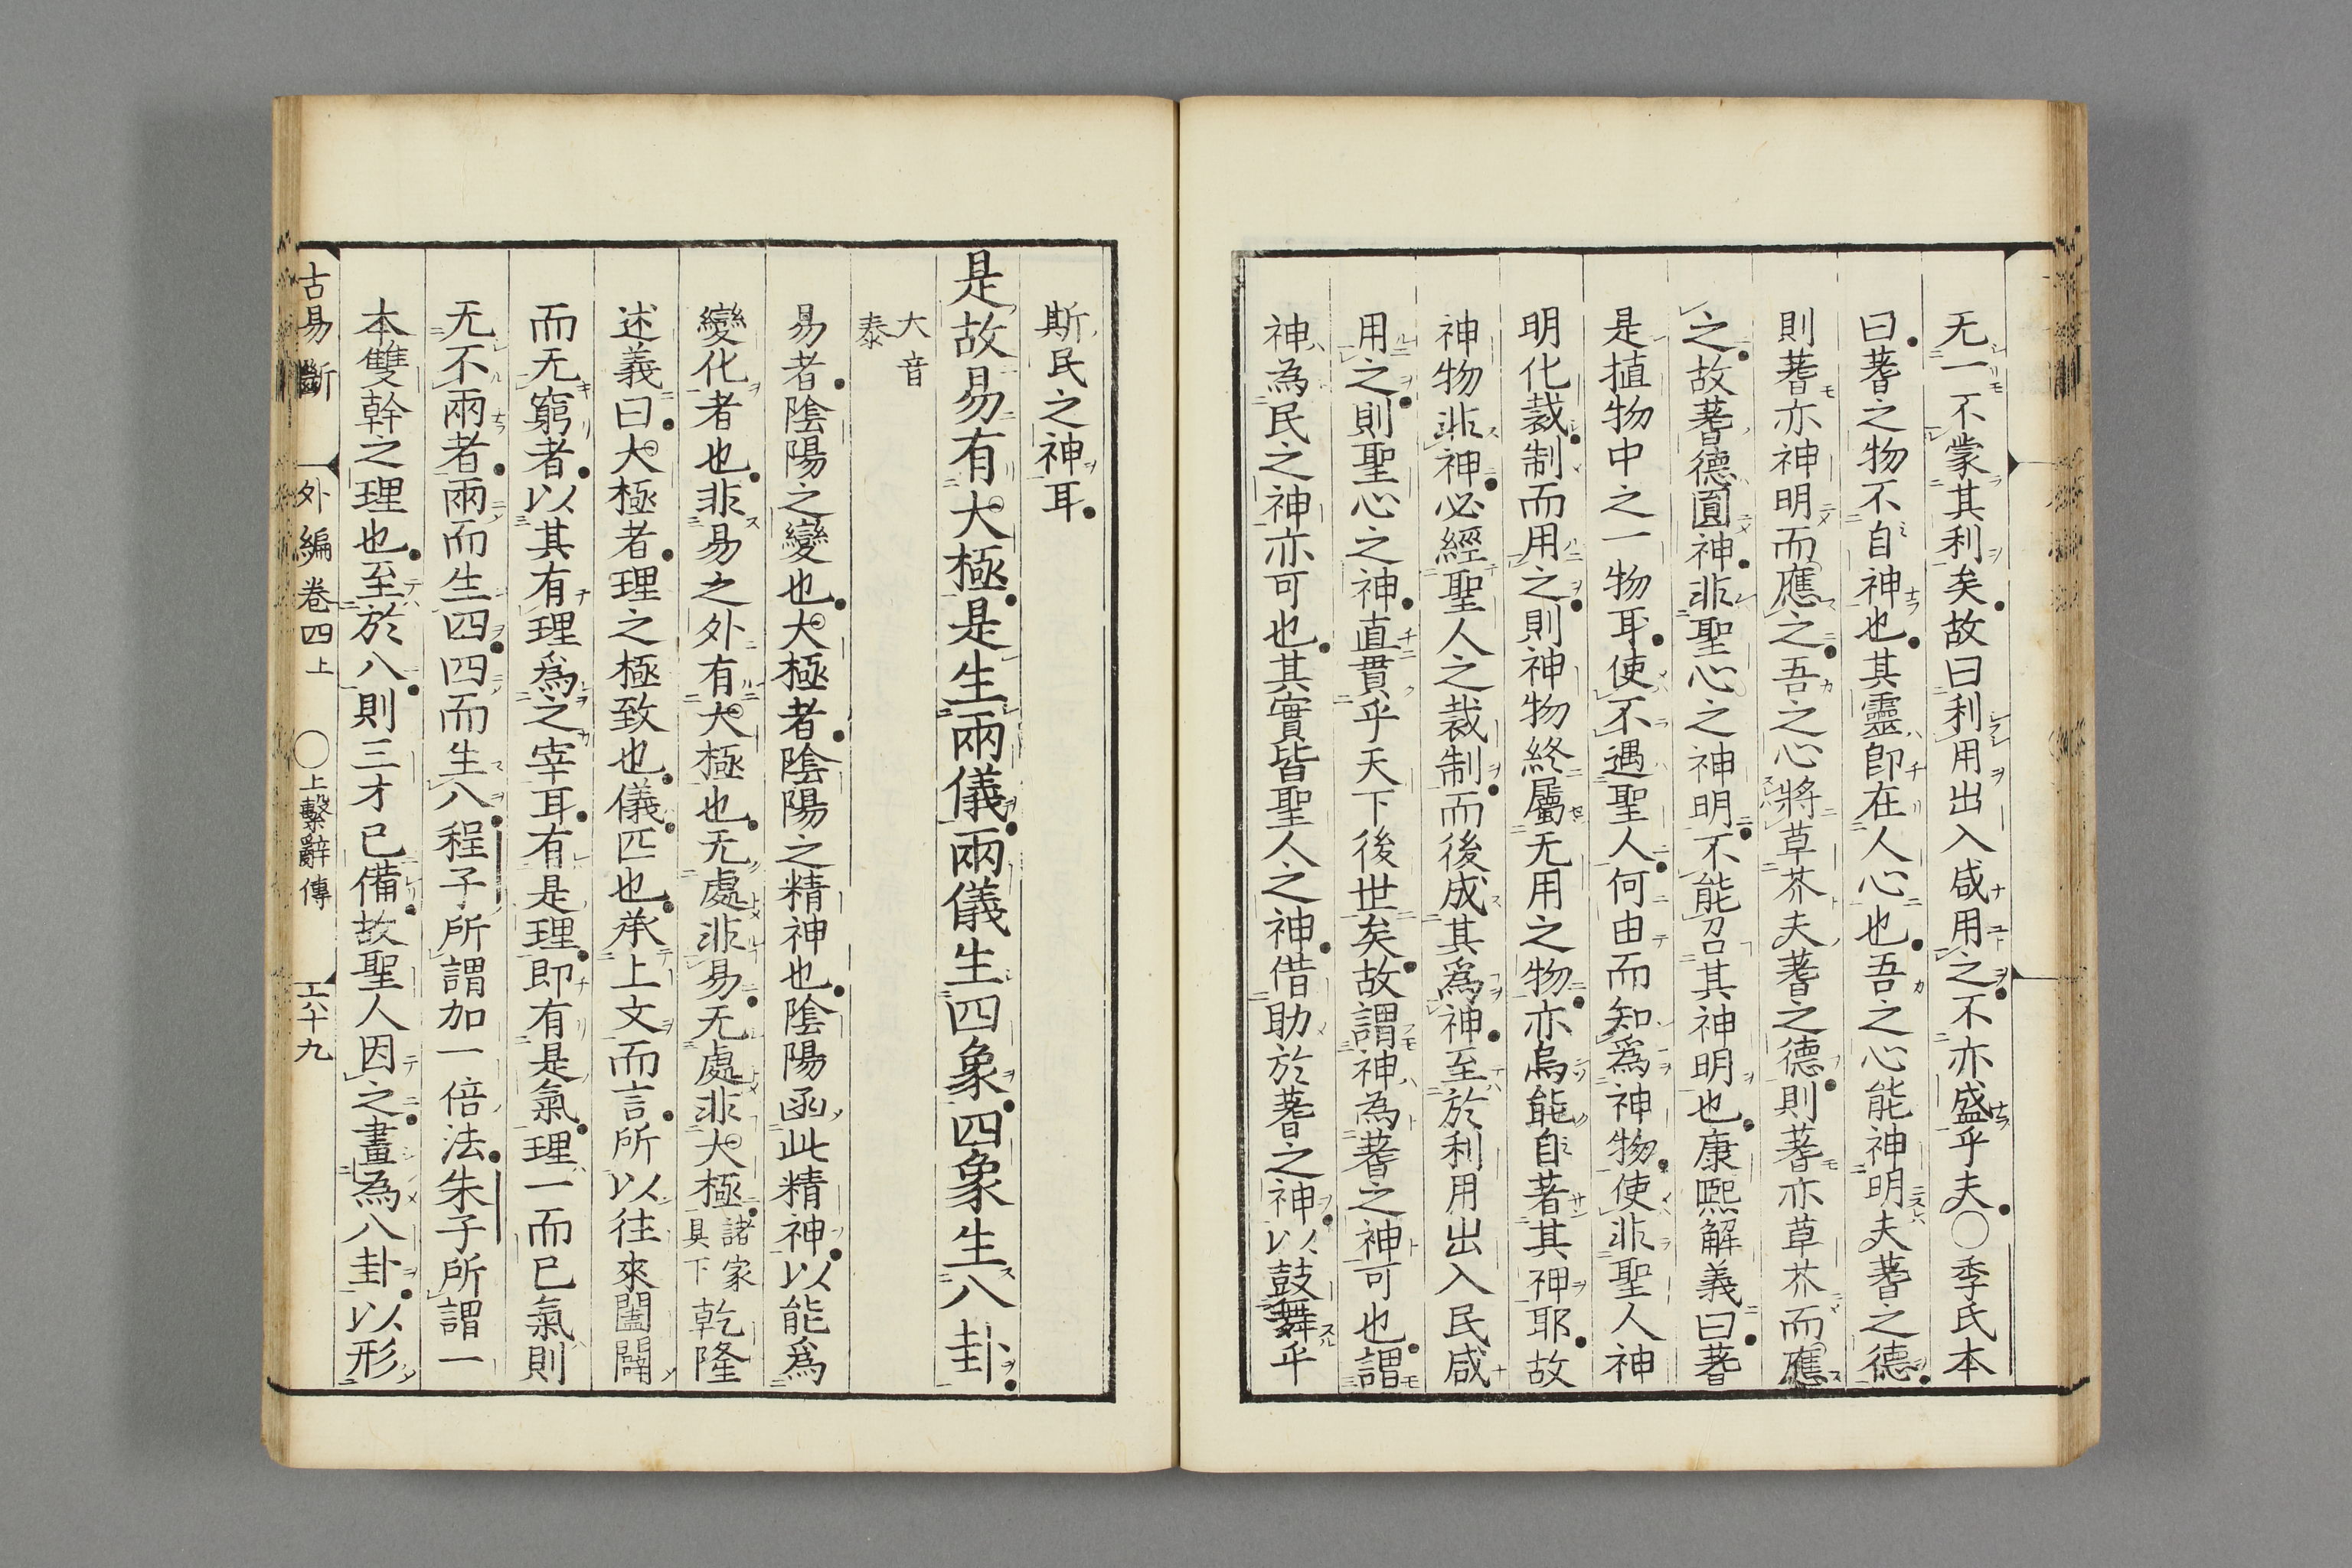 无一不蒙其利矣故曰利用出入咸用之不亦盛乎夫〇季氏本
曰蓍之物不自神也其靈卽在人心也吾之心能神明夫蓍之德
則蓍亦神明而應之吾之心將草芥夫蓍之德則蓍亦草芥而應
之故蓍德圓神非聖心之神明不能召其神明也康熙解義曰蓍
是植物中之一物耳使不遇聖人何由而知爲神物使非聖人神
明化裁制而用之則神物終屬无用之物亦烏能自著其神耶故
神物非神必經聖人之裁制而後成其爲神至於利用出入民咸
用之則聖心之神直貫乎天下後世矣故謂神為蓍之神可也謂
神為民之神亦可也其實皆聖人之神借助於蓍之神以鼓舞乎
斯民之神耳
是故易有大極是生兩儀兩儀生四象四象生八卦
大音
泰
易者陰陽之變也大極者陰陽之精神也陰陽函此精神以能爲
變化者也非易之外有大極也无處非易无處非大極諸家具下乾隆
述義曰大極者理之極致也儀匹也承上文而言所以往來闔闢
而无窮者以其有理爲之宰耳有是理即有是氣理一而已氣則
无不兩者兩而生四四而生八程子所謂加一倍法朱子所謂一
本雙幹之理也至於八則三才已備故聖人因之畫為八卦以形
古易斷 外編卷四上 〇上繫辭傳 六十九